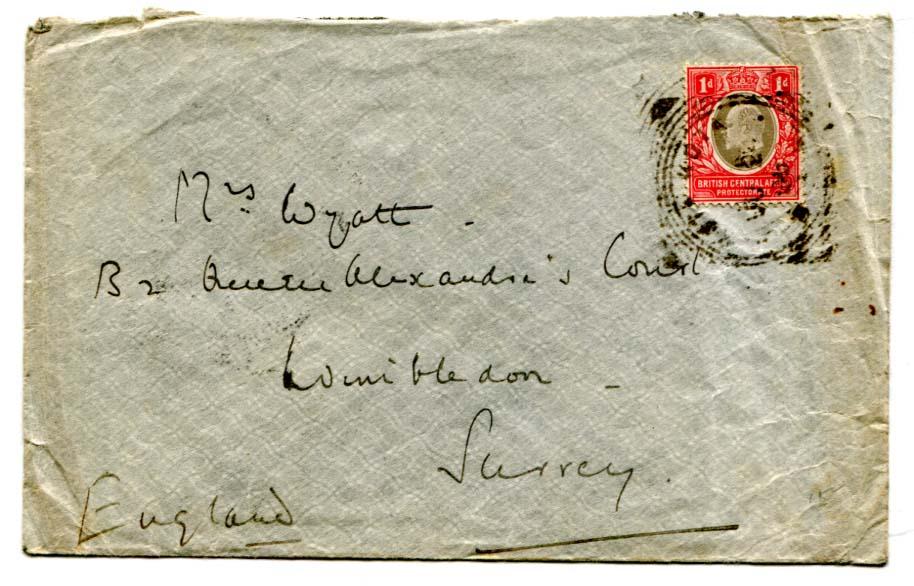 1d 1d
BRITISH CENTRAL AFRICA
PROTECTORATE
Mrs Wyatt -
B2 Queen Alexandra's Court
Wimbledon -
Surrey.
England